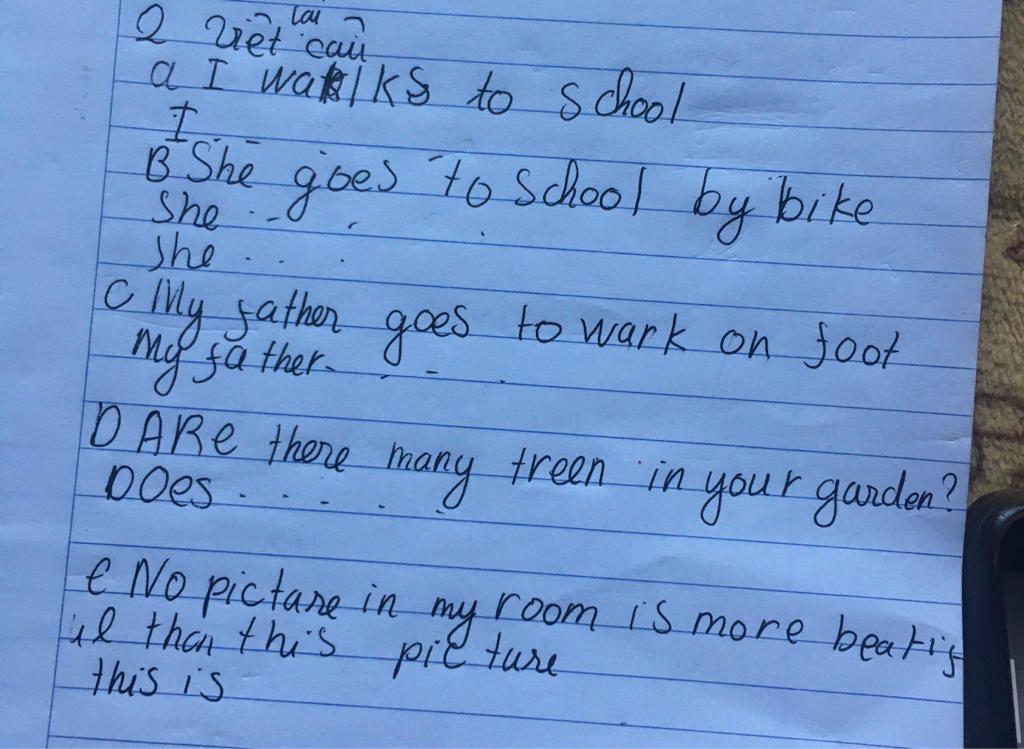 2 Viêt lai câu
a I walks to school
I
B She goes to school by bike
She . . .
She . . . .
C My father goes to wark on foot
My father . . . .
D ARe there many treen in your garden?
DOes . . . . .
e No picture in my room is more beatif
ul than this picture
this is